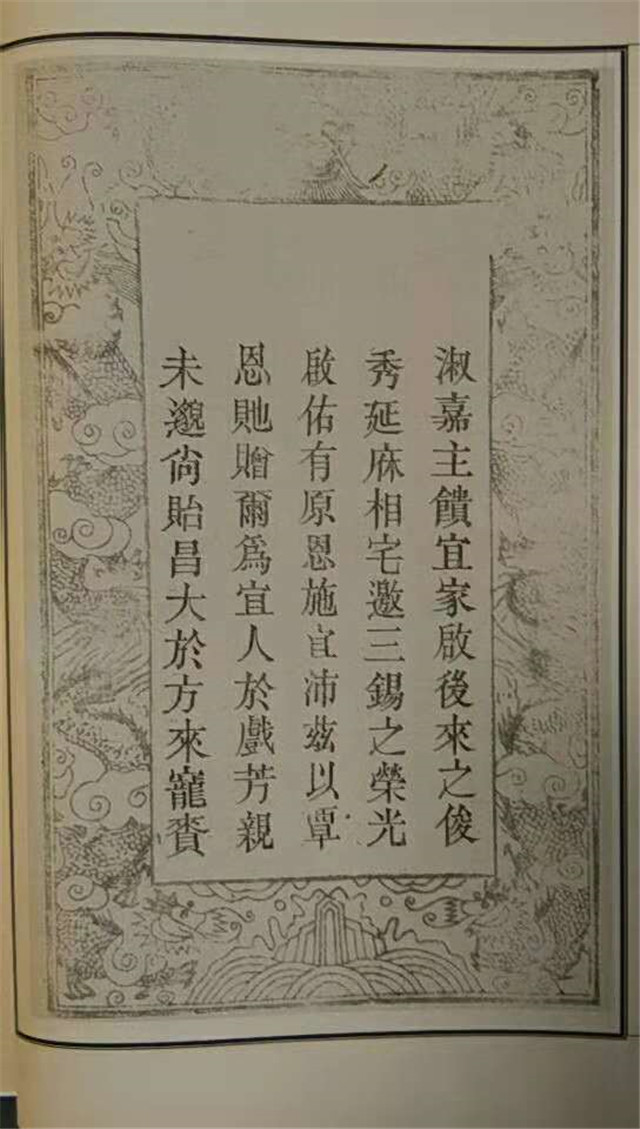 淑嘉主饋宜家啟後來之俊
秀延庥相宅邀三錫之榮光
啟佑有原恩施宜沛兹以覃
恩貤贈爾爲宜人於戲芳親
未邈尙貽昌大於方來寵賚